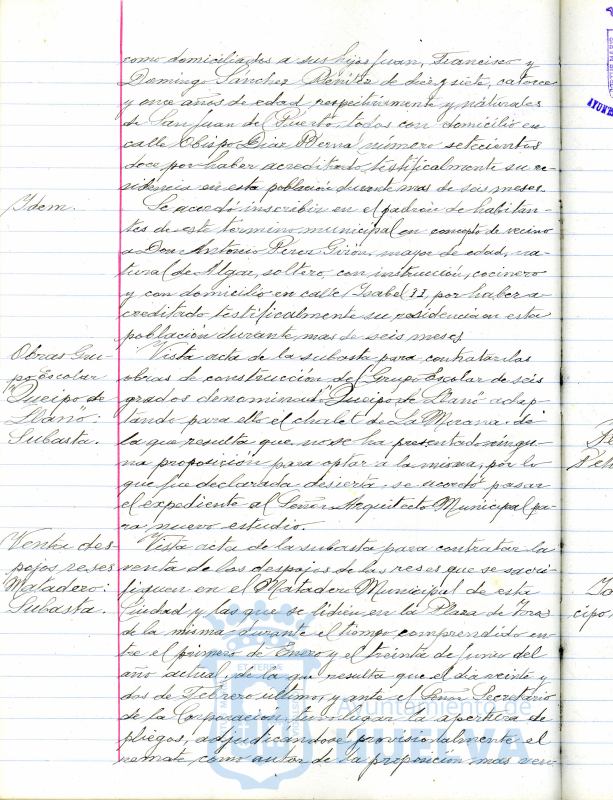 como domiciliados a sus hijos Juan, Francisco y
Domingo Sánchez Benítez de diez y siete, catorce
y once años de edad respectivamente y naturales
de San Juan del Puerto, todos con domicilio en
calle Obispo Diaz Bernal número setecientos
doce por haber acreditado testificalmente su re-
sidencia en esta población durante mas de seis meses.
Idem.
Se acordó inscribir en el padrón de habitan-
tes de este termino municipal en concepto de vecino
a Don Antonio Pérez Girón, mayor de edad, na-
tural de Alga, soltero, con instrucción, cocinero
y con domicilio en calle Isabel II por haber a-
creditado testificalmente su residencia en esta
población durante mas de seis meses.
Obras Gru-
po Escolar
"Queipo de
Llano":
Subasta.
Vista acta de la subasta para contratar las
obras de construcción del Grupo Escolar de seis
grados denominado "Queipo de Llano" adap-
tando para ello el chalet de La Morana, de
la que resulta que no se ha presentado ningu-
na proposición para optar a la misma, por lo
que fue declarada desierta, se acordó pasar
el expediente al Señor Arquitecto Municipal pa-
ra nuevo estudio.
Venta des-
pojos reses
Matadero:
Subasta.
Vista acta de la subasta para contratar la
venta de los despojos de las reses que se sacri-
fiquen en el Matadero Municipal de esta
Ciudad y las que se lidien en la Plaza de Toros
de la misma durante el tiempo comprendido en-
tre el primero de Enero y el treinta de Junio del
año actual, de la que resulta que el dia veinte y
dos de Febrero último y ante el Señor Secretario
de la Corporación, tuvo lugar la apertura de
pliegos, adjudicándose provisionalmente el
remate, como autor de la proposición mas ven-
Ayuntamiento de
HUELVA